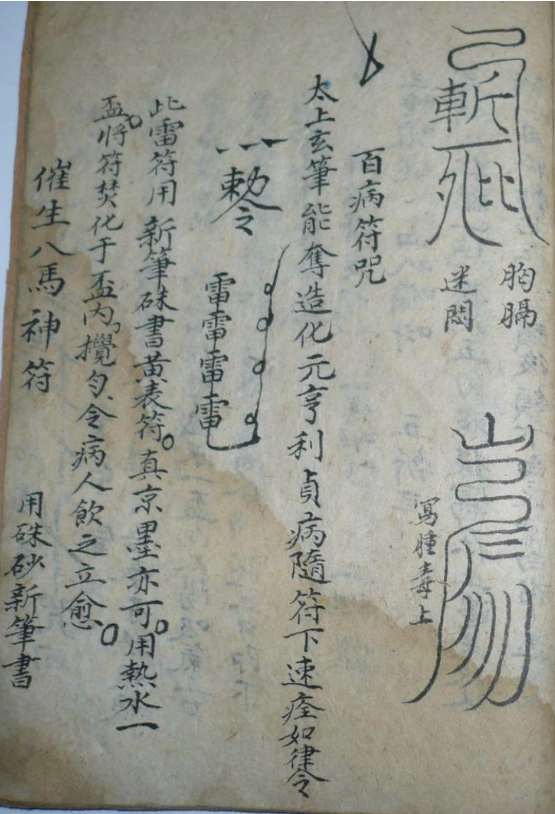 斬
胸膈
迷悶
寫腫毒上
百病符咒
太上玄筆能奪造化元亨利貞病隨符下速痊如律令
勅令
雷雷雷雷
此雷符用新筆硃書黃表符。真京墨亦可。用熱水一
盃。將符焚化于盃內。攪勻、令病人飲之立愈。
催生八馬神符
用硃砂新筆書